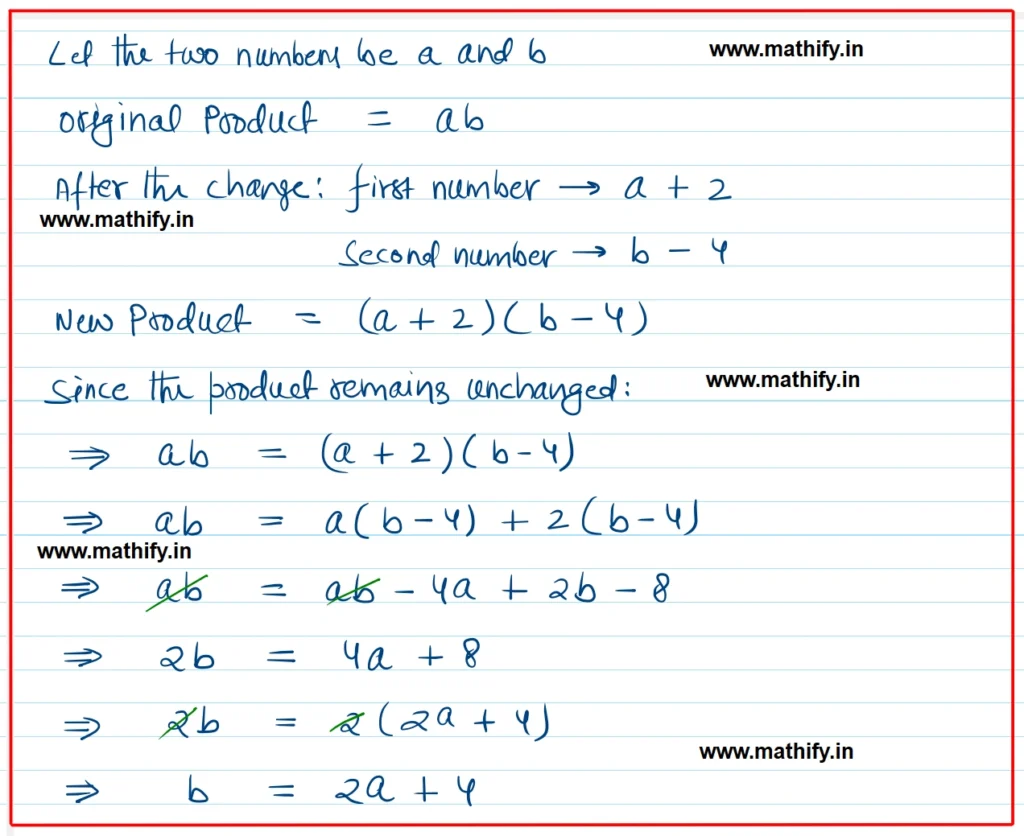 Let the two numbers be a and b www.mathify.in
original Product = ab
After the change: first number → a + 2
www.mathify.in
Second number → b - 4
New Product = (a + 2)(b - 4)
Since the product remains unchanged: www.mathify.in
⇒ ab = (a + 2)(b - 4)
⇒ ab = a(b - 4) + 2(b - 4)
www.mathify.in
⇒ ab = ab - 4a + 2b - 8
⇒ 2b = 4a + 8
⇒ 2b = 2(2a + 4)
www.mathify.in
⇒ b = 2a + 4